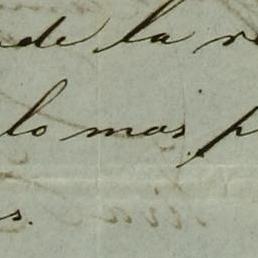 de la
lo mas p
s.